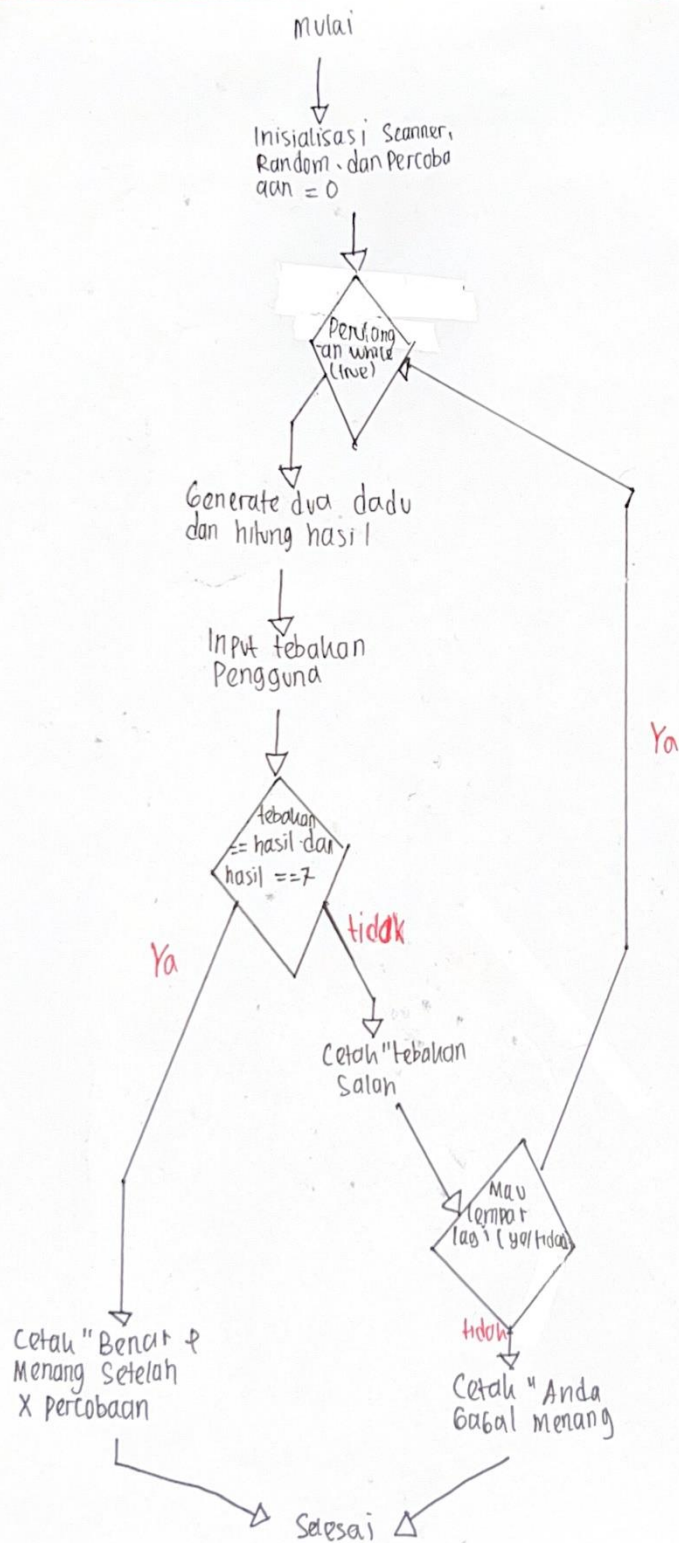 Mulai
Inisialisasi Scanner,
Random. dan Percoba
aan = 0
Perulong
-an while
(true)
Generate dua dadu
dan hitung hasil
Input tebakan
Pengguna
tebakan
== hasil dan
hasil ==7
Ya
tidak
Ya
Cetak "tebakan
Salah
Mau
lempar
lagi (ya/tidak)
tidak
Cetak "Benar &
Menang Setelah
X Percobaan
Cetak "Anda
Gagal Menang
Selesai